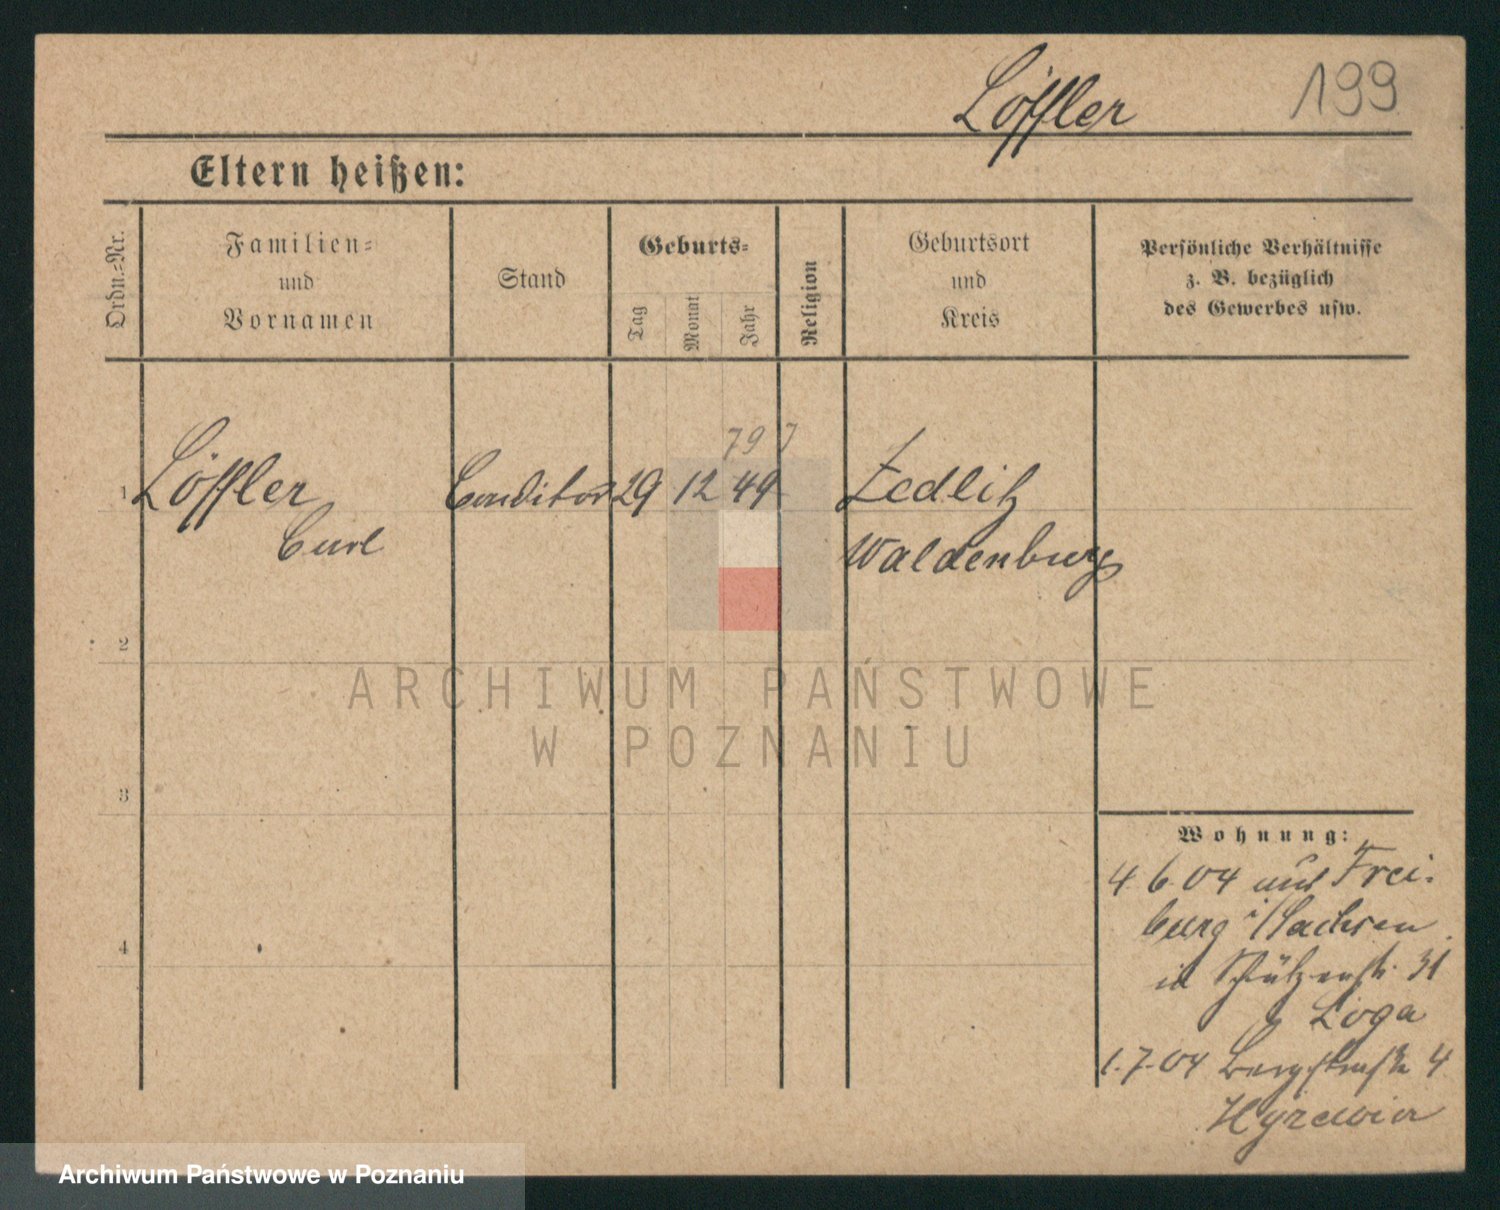 Löffler
199
Eltern heißen:
Ordn.=Nr.
Familien=
und
Vornamen
Stand
Geburts=
Tag
Monat
Jahr
Religion
Geburtsort
und
Kreis
Persönliche Verhältnisse
z. B. bezüglich
des Gewerbes usw.
79 7
1 Löffler Conditor 29 12 49 Zedlitz
Curl Waldenburg
2
3
4
ARCHIWUM PAŃSTWOWE
W POZNANIU
Wohnung:
4.6.04 aus Frei-
burg i/Sachsen
in Schützenstr. 31
Loga
1.7.04 Bergstraße 4
Archiwum Państwowe w Poznaniu